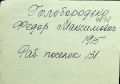 Голобородько
№31
Федор Максимович
1915
Раб. поселок 131